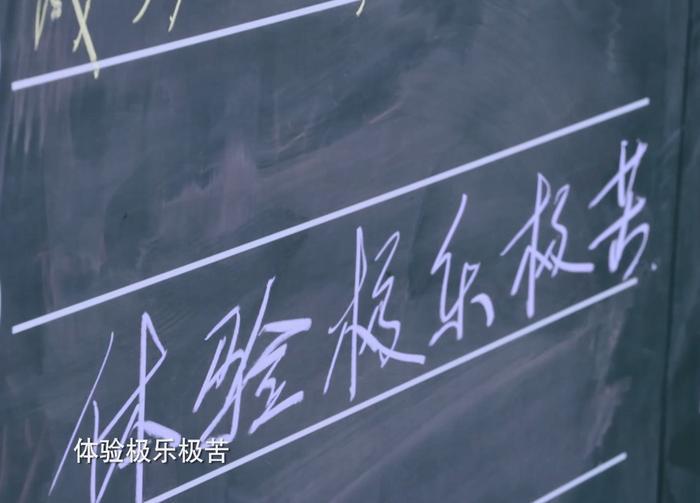 体验极乐极苦
体验极乐极苦